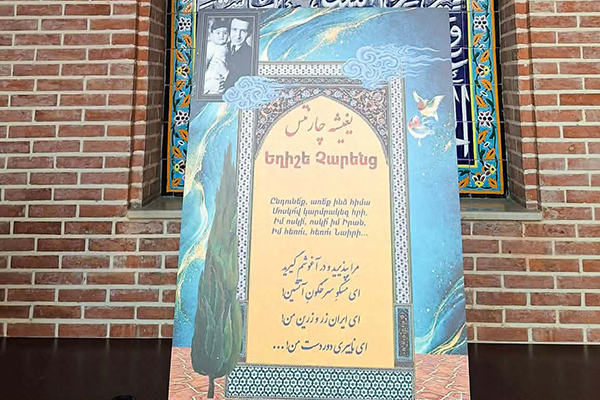 یغیشه چارنتس
Եղիշե Չարենց
Ընդունե՛ք, առե՛ք ինձ հիմա
Մոսկո՛վ կարմրակեզ հրի,
Իմ ոսկի՛, ոսկի՛ իմ Իրան,
Իմ հեռո՛ւ, հեռո՛ւ Նաիրի...
مرا بپذیرید و در آغوشم گیرید
ای مسکو سرخگون آتشین!
ای ایران زر و زرین من!
ای نایری دوردست من!...